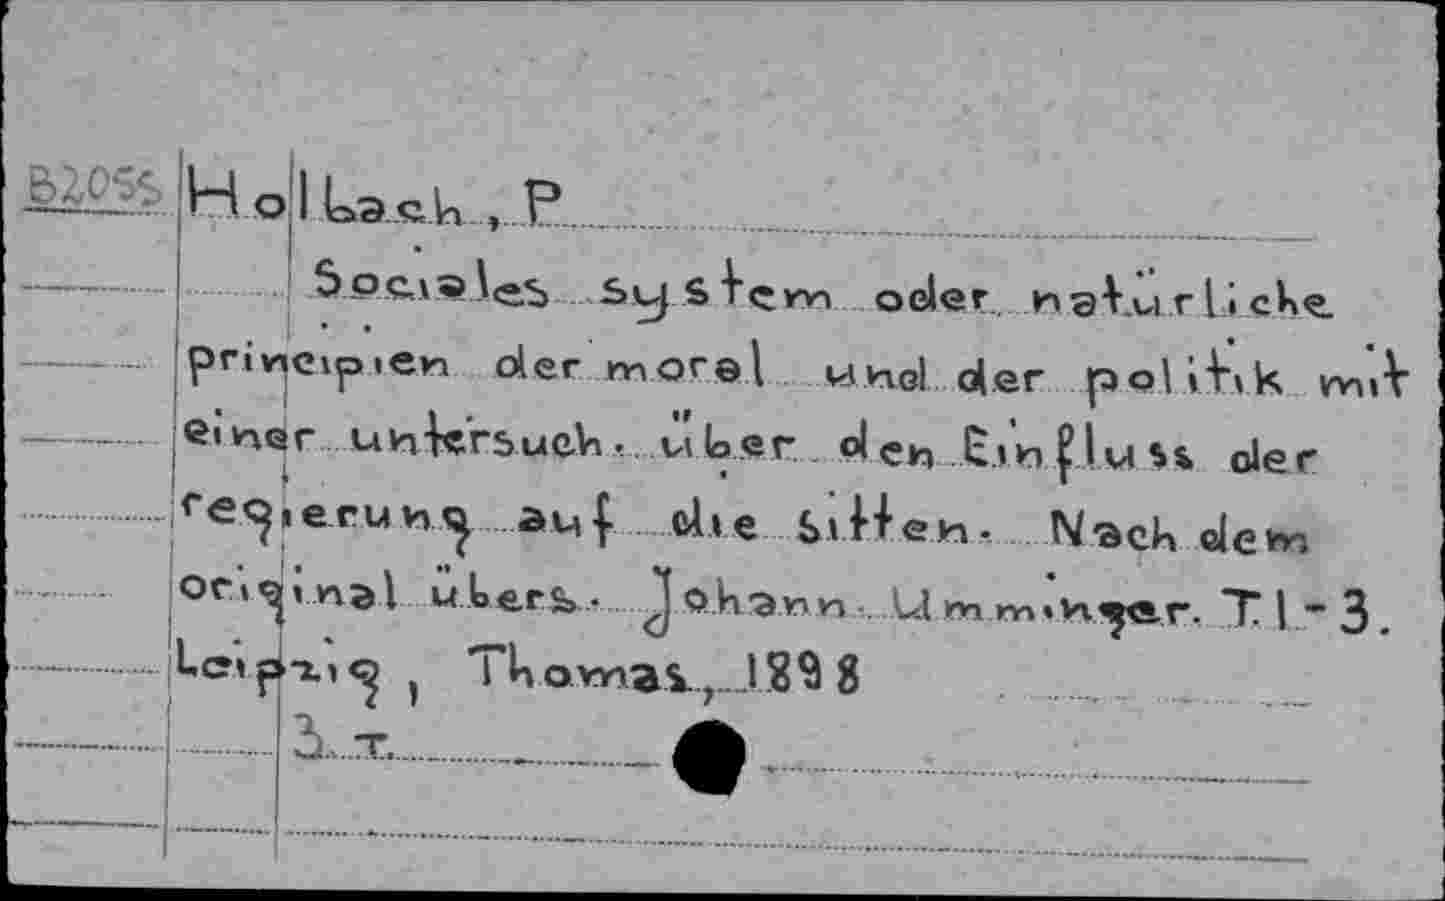 B2055 Holbach, P
Sociales system oder natürliche
principien der moral und der politik mit
einer untersuch. über den Einfluss der
regierung auf die sitten. Nach dem
original übers. Johann Umminger. T. 1-3.
Leipzig, Thomas, 1898
3 т.